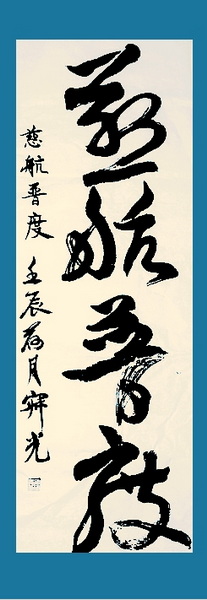 慈航普度
慈航普度 壬辰荷月 辉光